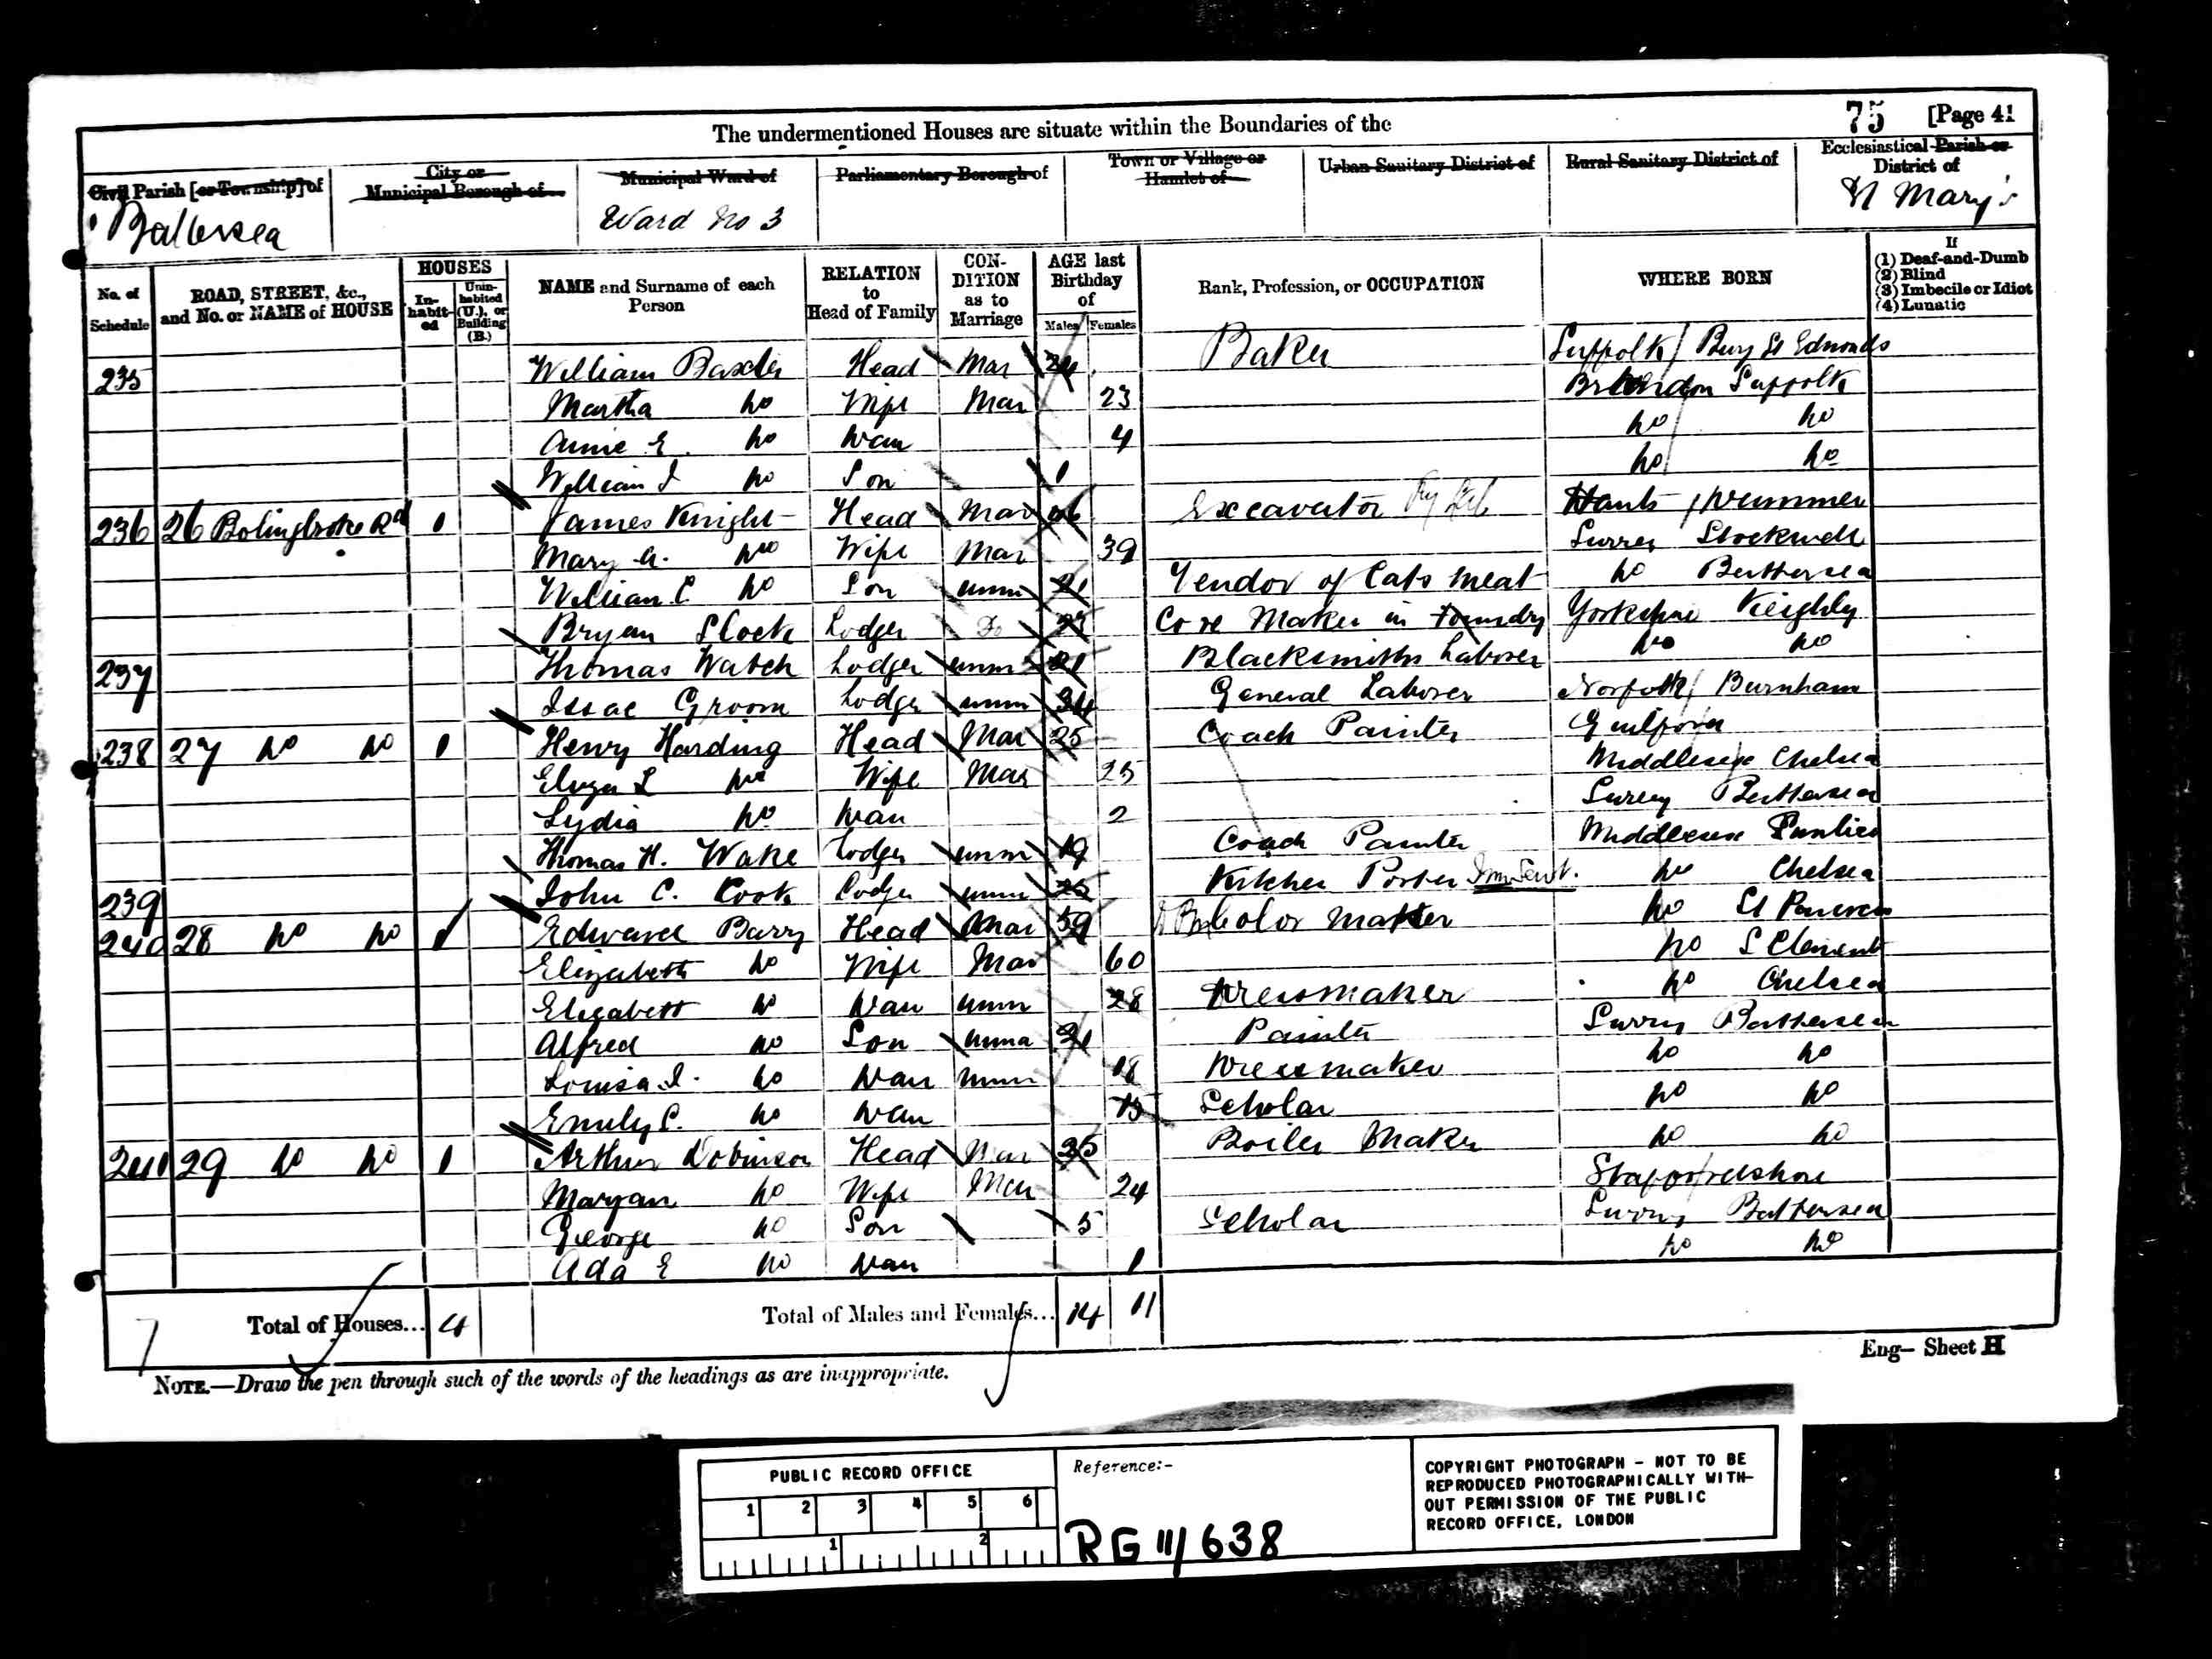 The undermentioned Houses are situate within the Boundaries of the
75 [Page 41
Civil Parish [or Township] of
Battersea
City or
Municipal Borough of
Municipal Ward of
Ward No 3
Parliamentary Borough of
Town or Village or
Hamlet of
Urban Sanitary District of
Rural Sanitary District of
Ecclesiastical Parish or
District of
St Mary's
No. of
Schedule
ROAD, STREET, &c.,
and No. or NAME of HOUSE
HOUSES
In-
habit-
ed
Unin-
habited
(U.), or
Building
(B.)
NAME and Surname of each
Person
RELATION
to
Head of Family
CON-
DITION
as to
Marriage
AGE last
Birthday
of
Males Females
Rank, Profession, or OCCUPATION
WHERE BORN
If
(1) Deaf-and-Dumb
(2) Blind
(3) Imbecile or Idiot
(4) Lunatic
235 William Baxter Head Mar 24 Baker Suffolk Bury St Edmonds
Martha Do Wife Mar 23 Brandon Suffolk
Annie E. Do Daur 4 Do Do
William J Do Son 1 Do Do
236 26 Bolingbroke Rd 1 James Knight Head Mar Excavator Hants Dummer
Mary A. Do Wife Mar 39 Surrey Stockwell
William C Do Son unm 21 Vendor of Cats Meat Do Battersea
Bryan Slock Lodger Do Core Maker in Foundry Yorkshire Keighly
237 Thomas Watch Lodger unm 21 Blacksmiths Laborer Do Do
Issac Groom Lodger unm 34 General Laborer Norfolk Burnham
238 27 Do Do 1 Henry Harding Head Mar 25 Coach Painter Guilford
Eliza L Do Wife Mar 25 Middlesex Chelsea
Lydia Do Daur 2 Surrey Battersea
Thomas H. Wake Lodger unm 19 Coach Painter Middlesex Pimlico
239 John C. Cook Lodger unm 25 Kitchen Porter Inn Servt. Do Chelsea
240 28 Do Do 1 Edward Barry Head Mar 59 Color Maker Do St Pancras
Elizabeth Do Wife Mar 60 Do S Clements
Elizabeth Do Daur unm 28 Dressmaker Do Chelsea
Alfred Do Son unm 21 Painter Surrey Battersea
Louisa J. Do Daur unm 18 Dressmaker Do Do
Emily C. Do Daur 13 Scholar Do Do
241 29 Do Do 1 Arthur Dobinson Head Mar 25 Boiler Maker Do Do
Maryan Do Wife Mar 24 Staffordshire
George Do Son 5 Scholar Surrey Battersea
Ada E Do Daur 1 Do Do
7 Total of Houses... 4 Total of Males and Females... 14 11
Eng— Sheet H
NOTE.—Draw the pen through such of the words of the headings as are inappropriate.
PUBLIC RECORD OFFICE
1 2 3 4 5 6
1 2
Reference:-
RG 11/638
COPYRIGHT PHOTOGRAPH - NOT TO BE
REPRODUCED PHOTOGRAPHICALLY WITH-
OUT PERMISSION OF THE PUBLIC
RECORD OFFICE, LONDON